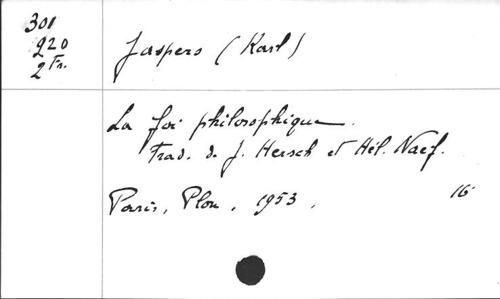 301
920
2 Fr.
Jaspers (Karl)
La foi philosophique.
Trad. de J. Hersch et Hél. Naef.
Paris, Plon, 1953, 16